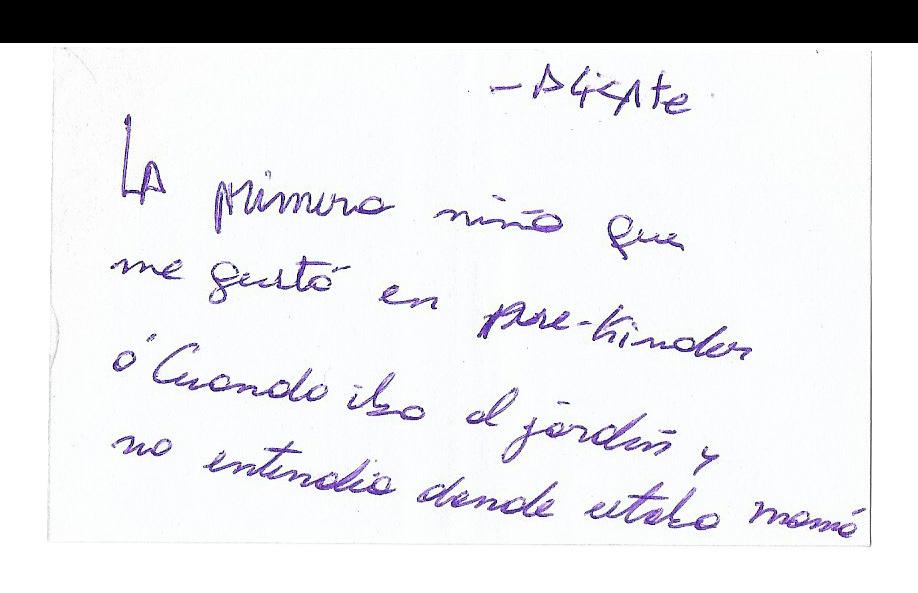 - Alicate
LA primera niña que
me gustó en pre-kinder
ó Cuando iba al jardín y
no entendia donde estaba mamá